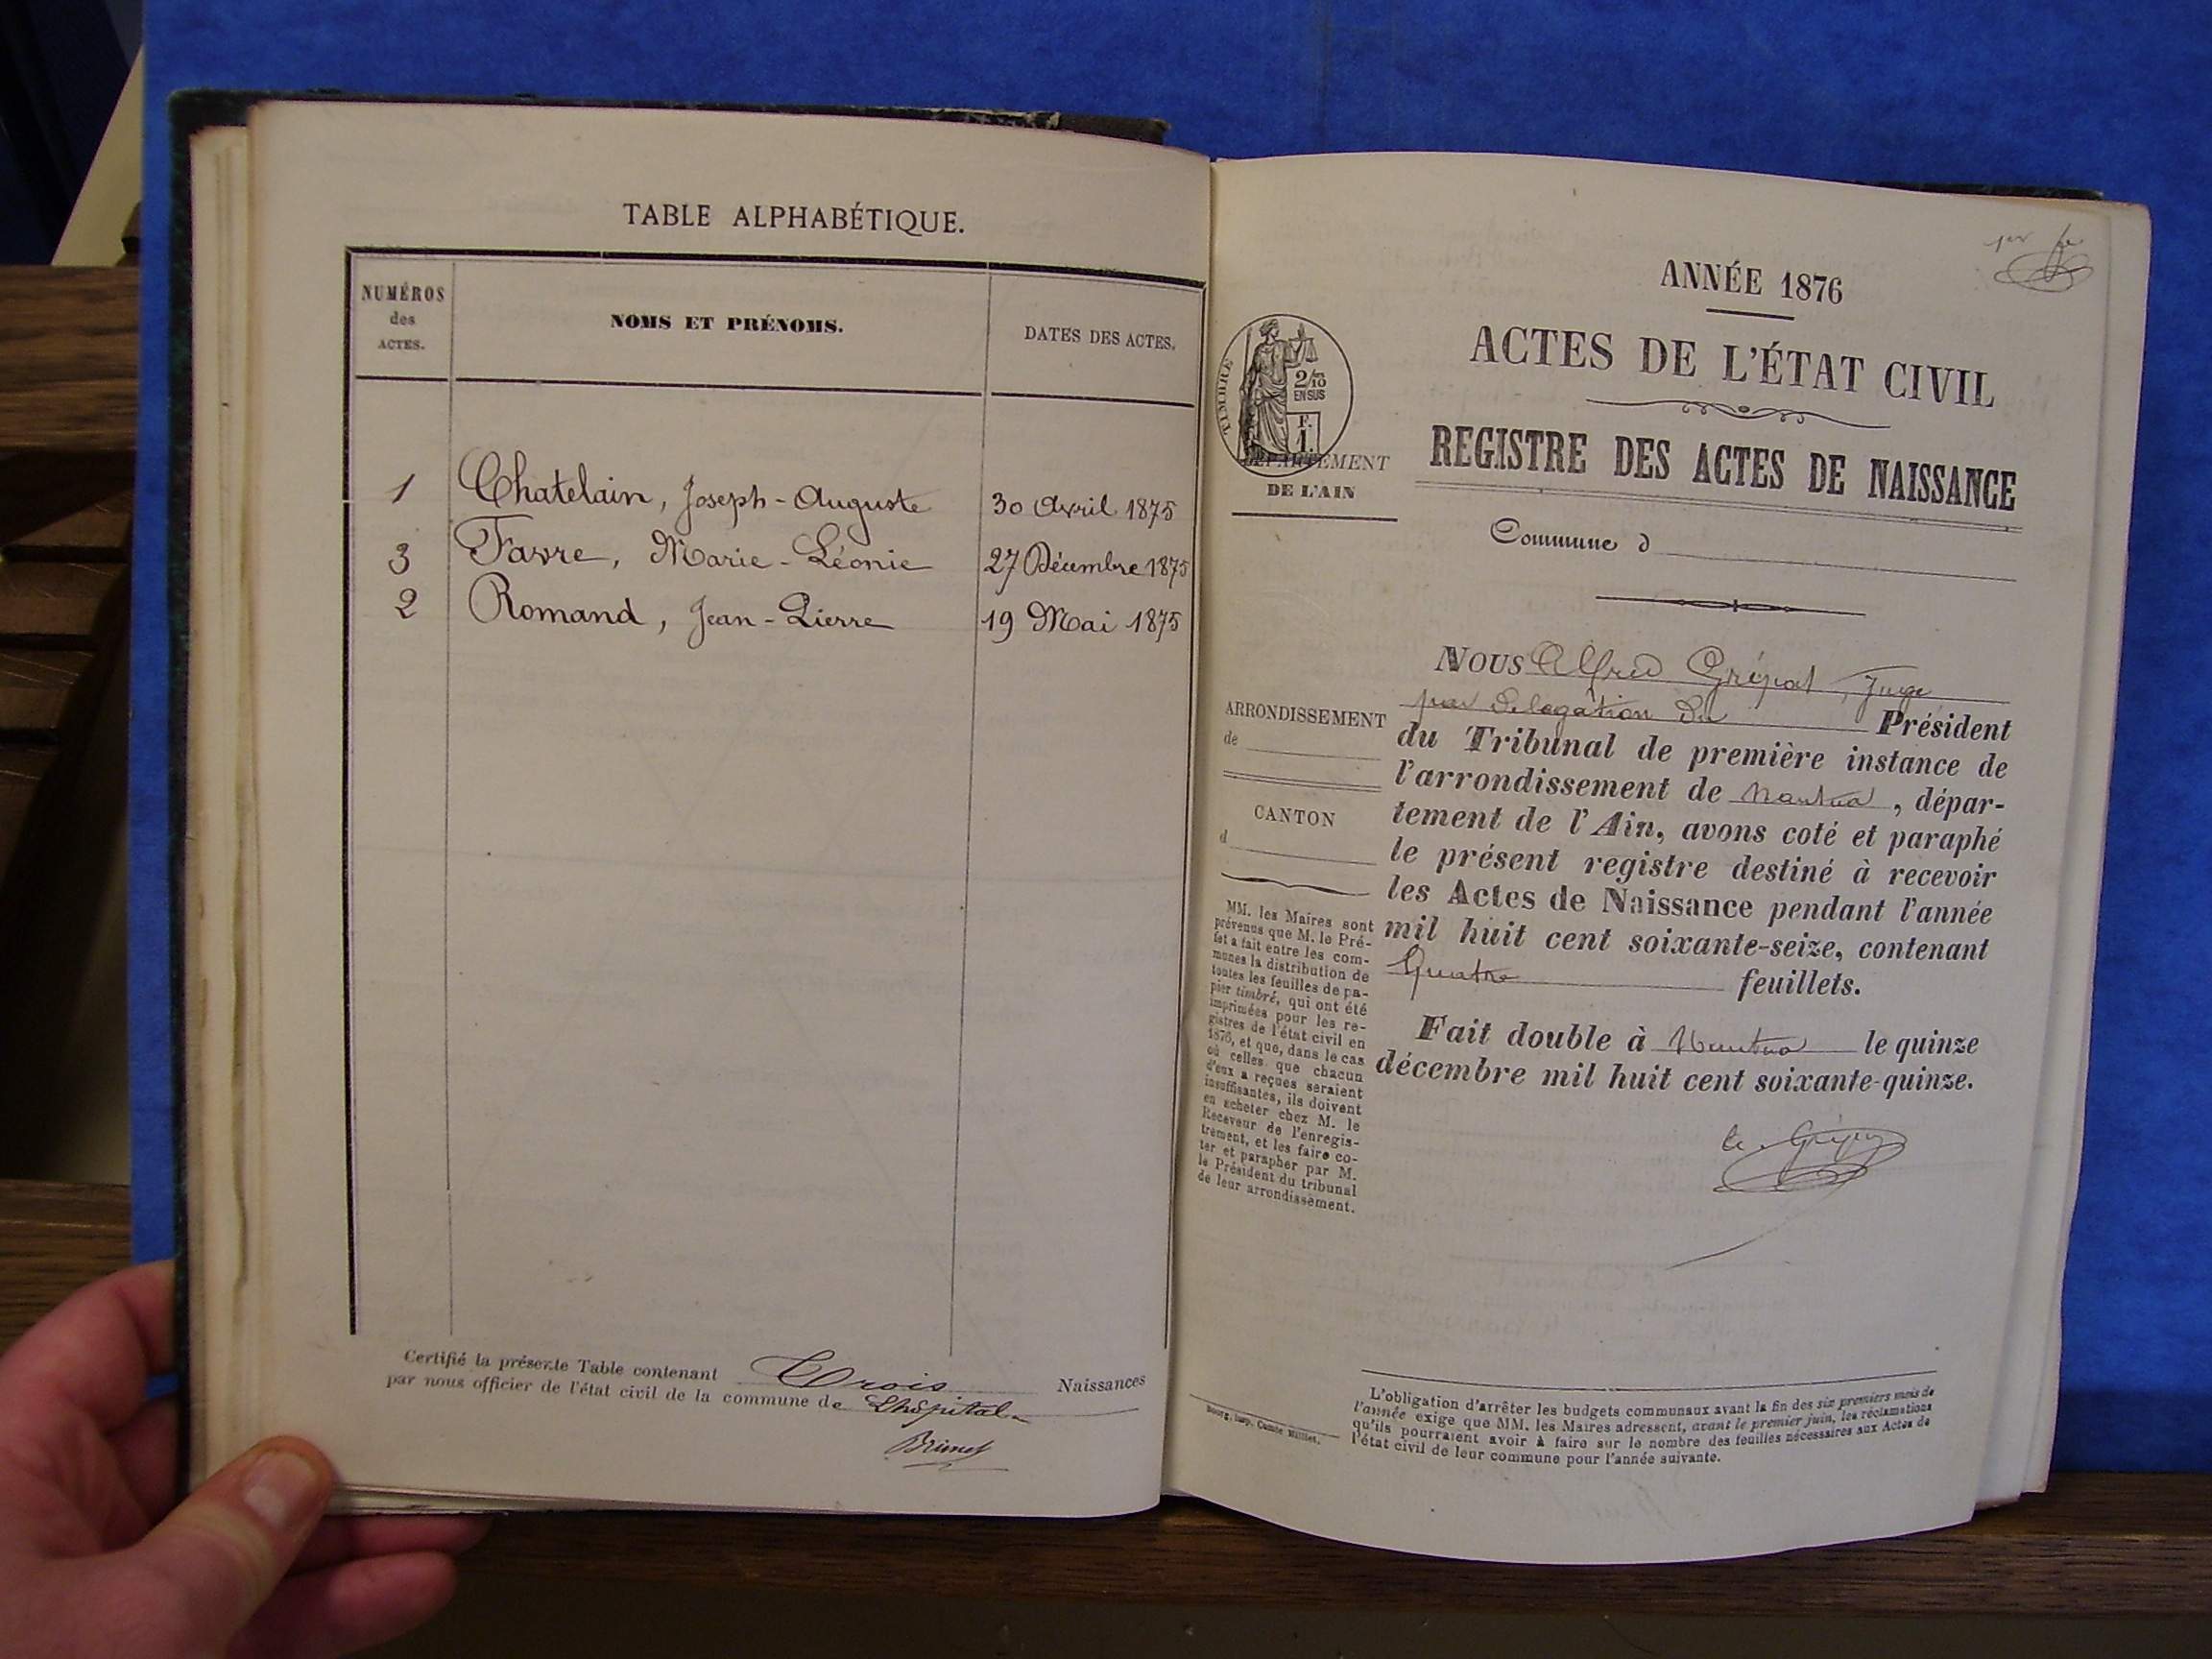 TABLE ALPHABÉTIQUE.
NUMÉROS
des
ACTES.
NOMS ET PRÉNOMS.
DATES DES ACTES.
1 Chatelain, Joseph-Auguste 30 Avril 1875
3 Favre, Marie-Léonie 27 Décembre 1875
2 Romand, Jean-Pierre 19 Mai 1875
Certifié la présente Table contenant Trois Naissances
par nous officier de l'état civil de la commune de Lhôpital
Brunet
1er
ANNÉE 1876
ACTES DE L'ÉTAT CIVIL
REGISTRE DES ACTES DE NAISSANCE
TIMBRE
2/10
EN SUS
F.
1.
DÉPARTEMENT
DE L'AIN
Commune d
ARRONDISSEMENT
de
CANTON
d
MM. les Maires sont
prévenus que M. le Pré-
fet a fait entre les com-
munes la distribution de
toutes les feuilles de pa-
pier timbré, qui ont été
imprimées pour les re-
gistres de l'état civil en
1876, et que, dans le cas
où celles que chacun
d'eux a reçues seraient
insuffisantes, ils doivent
en acheter chez M. le
Receveur de l'enregis-
trement, et les faire co-
ter et parapher par M.
le Président du tribunal
de leur arrondissement.
NOUS Alfred Grépat, Juge
par délégation du Président
du Tribunal de première instance de
l'arrondissement de Nantua, dépar-
tement de l'Ain, avons coté et paraphé
le présent registre destiné à recevoir
les Actes de Naissance pendant l'année
mil huit cent soixante-seize, contenant
Quatre feuillets.
Fait double à Nantua le quinze
décembre mil huit cent soixante-quinze.
L'obligation d'arrêter les budgets communaux avant la fin des six premiers mois de
l'année exige que MM. les Maires adressent, avant le premier juin, les réclamations
qu'ils pourraient avoir à faire sur le nombre des feuilles nécessaires aux Actes de
l'état civil de leur commune pour l'année suivante.
Bourg, imp. Comte Milliet.